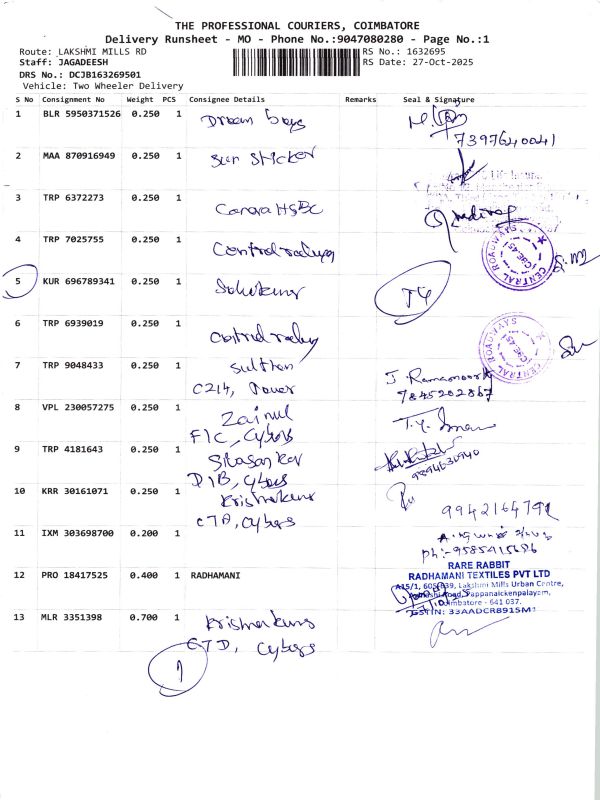 THE PROFESSIONAL COURIERS, COIMBATORE
Delivery Runsheet - MO - Phone No.:9047080280 - Page No.:1
Route: LAKSHMI MILLS RD RS No.: 1632695
Staff: JAGADEESH RS Date: 27-Oct-2025
DRS No.: DCJB163269501
Vehicle: Two Wheeler Delivery
S No Consignment No Weight PCS Consignee Details Remarks Seal & Signature
1 BLR 5950371526 0.250 1 Dream boys
7397640041
2 MAA 870916949 0.250 1 Sun Sticker
3 TRP 6372273 0.250 1 Canara HSBC
4 TRP 7025755 0.250 1 CENTRAL ROADWAYS CBE-45
5 KUR 696789341 0.250 1
6 TRP 6939019 0.250 1 CENTRAL ROADWAYS CBE-45
7 TRP 9048433 0.250 1 Sulthan
C214, Tower J. Ramamoorthy
7845202867
8 VPL 230057275 0.250 1 Zainul
F1C, Cybers
9 TRP 4181643 0.250 1 Sivasankar
D1B, Cybers 9894630940
10 KRR 30161071 0.250 1 Krishnakumar
C7D, Cybers
11 IXM 303698700 0.200 1
ph:-9585415686
12 PRO 18417525 0.400 1 RADHAMANI
RARE RABBIT
RADHAMANI TEXTILES PVT LTD
A15/1, 605/939, Lakshmi Mills Urban Centre,
Avinashi Road, Pappanaickenpalayam,
Coimbatore - 641 037.
GSTIN: 33AADCR8915M1
13 MLR 3351398 0.700 1 Krishnakumar
C7D, Cybers
1